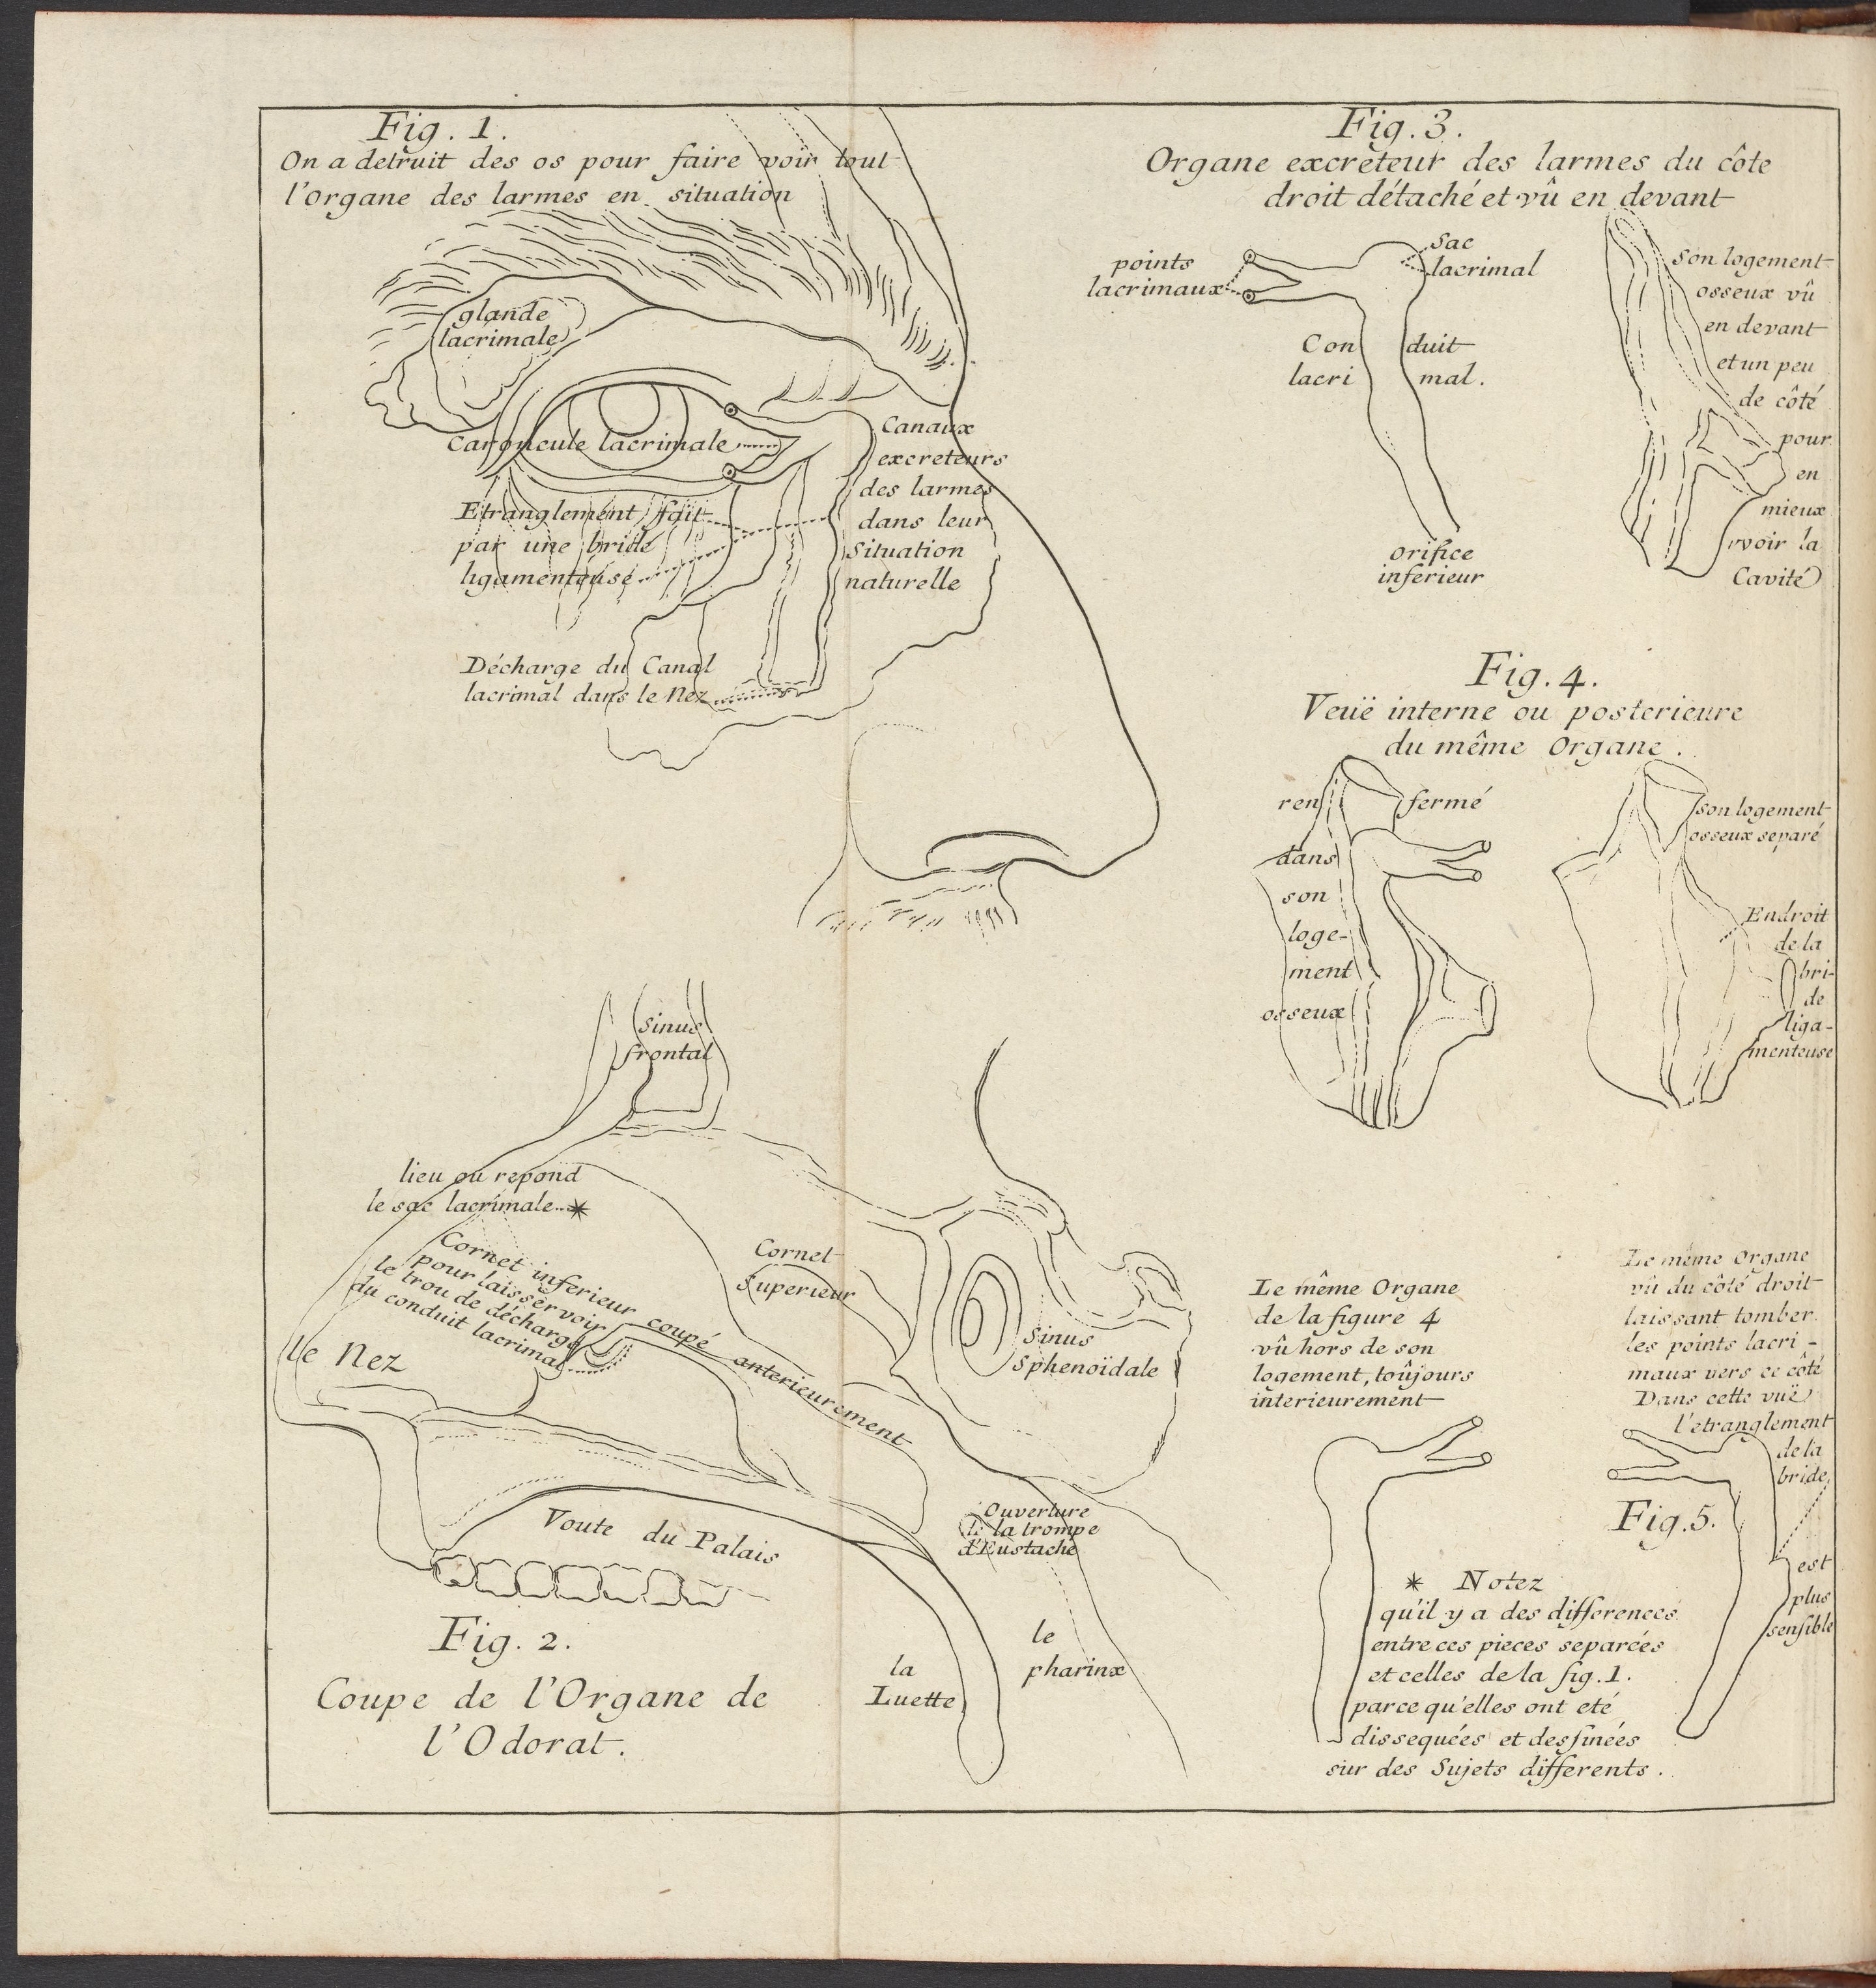 Fig. 1.
On a detruit des os pour faire voir tout
l'organe des larmes en situation
glande
lacrimale
Caroncule lacrimale
Canaux
excreteurs
des larmes
dans leur
Situation
naturelle
Etranglement fait
par une bride
ligamenteuse
Décharge du Canal
lacrimal dans le Nez
Fig. 3.
Organe excreteur des larmes du côte
droit détaché et vû en devant
points
lacrimaux
Sac
lacrimal
Con duit
lacri mal.
orifice
inferieur
Son logement
osseux vû
en devant
et un peu
de côté
pour
en
mieux
voir la
Cavité
Fig. 4.
Veuë interne ou posterieure
du même Organe.
ren fermé
dans
son
loge-
ment
osseux
son logement
osseux separé
Endroit
de la
bri-
de
liga-
menteuse
Sinus
frontal
lieu ou repond
le sac lacrimale *
Cornet inferieur coupé anterieurement
pour laisser voir
le trou de décharge
du conduit lacrimal
Cornet
Superieur
le Nez
Sinus
Sphenoïdale
Voute du Palais
Ouverture
de la trompe
d'Eustache
la
Luette
le
pharinx
Fig. 2.
Coupe de l'Organe de
l'Odorat.
Le même Organe
de la figure 4
vû hors de son
logement, toûjours
interieurement
Le même Organe
vû du côté droit
laissant tomber
les points lacri-
maux vers ce côté
Dans cette vuë
l'etranglement
de la
bride
est
plus
sensible
Fig. 5.
* Notez
qu'il y a des differences
entre ces pieces separées
et celles de la fig. 1.
parce qu'elles ont eté
dissequées et dessinées
sur des Sujets differents.